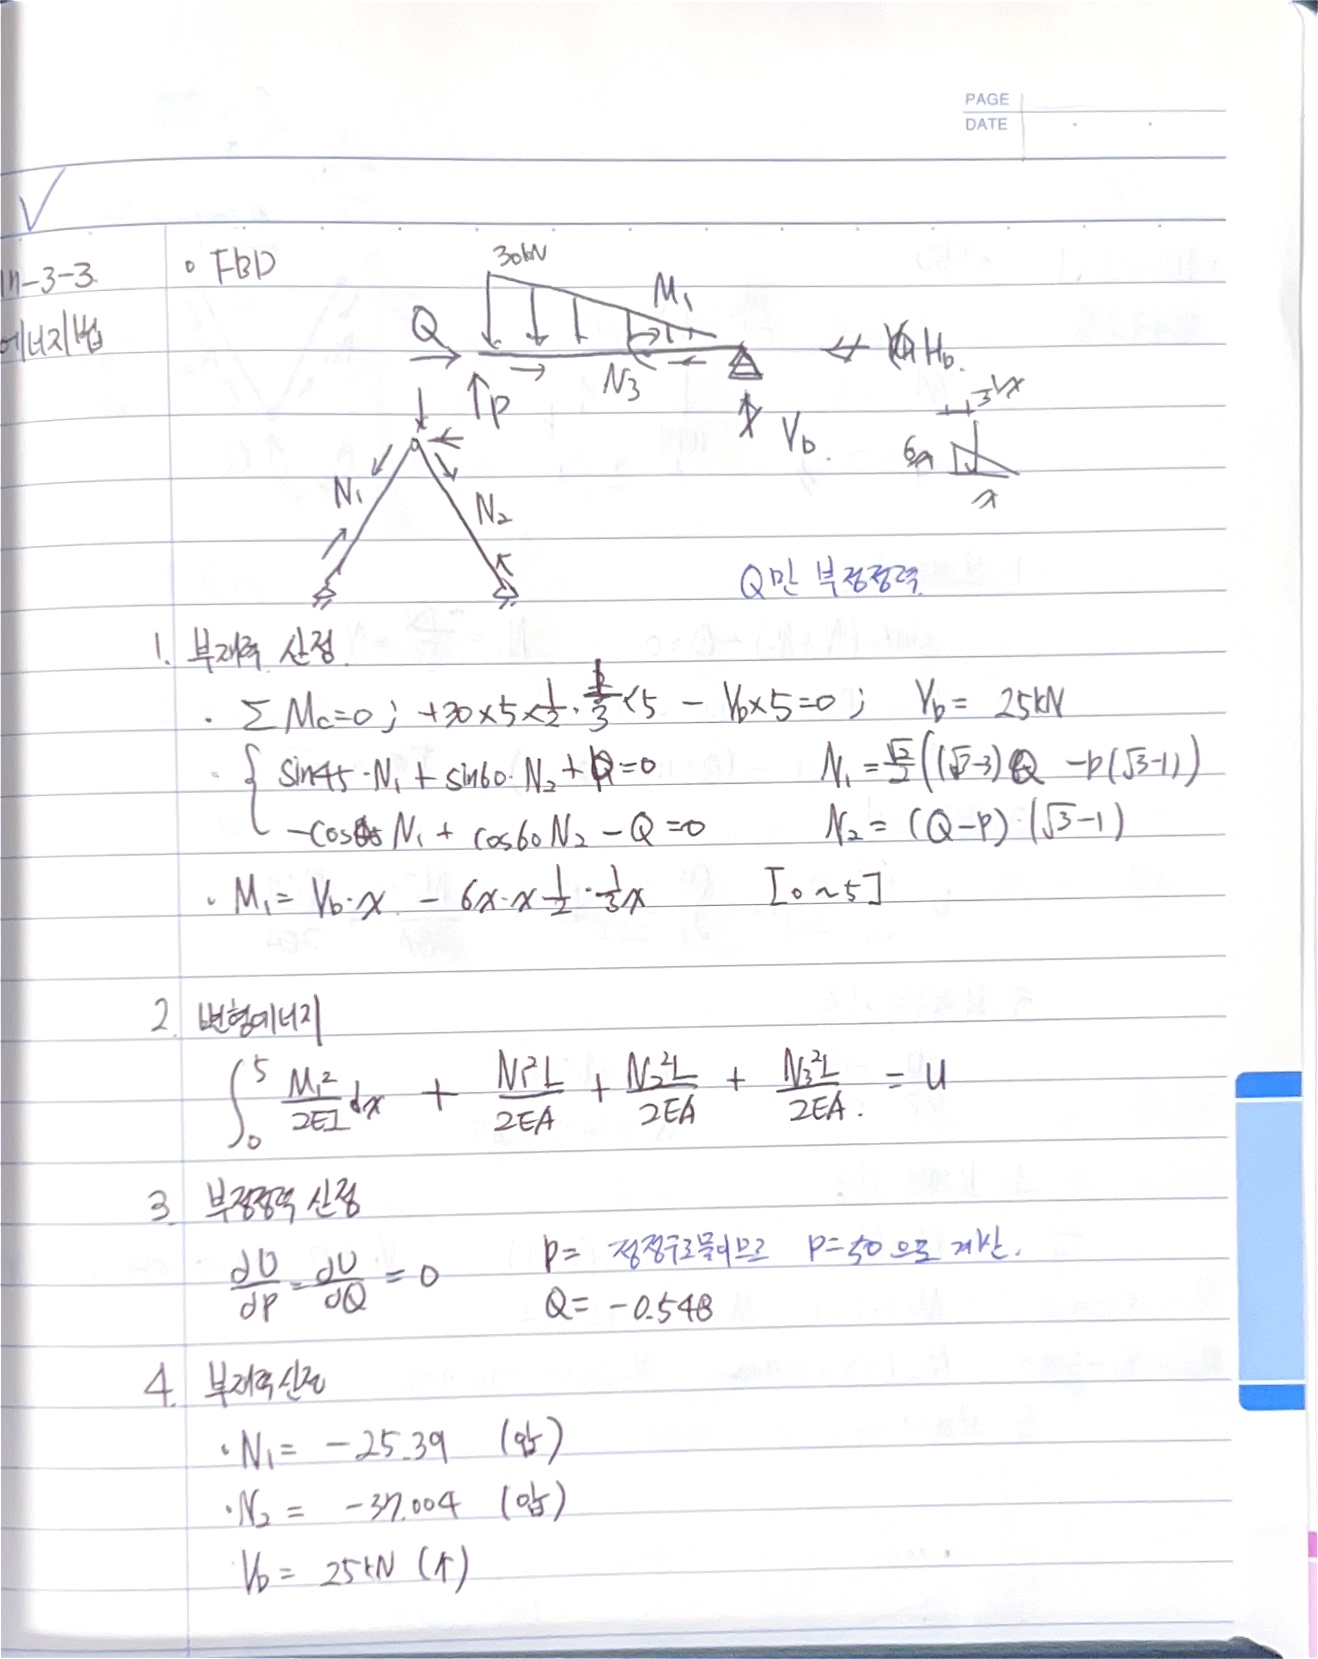 PAGE
DATE
m-3-3
에너지법
∘ FBD
30kN
M₁
Q
N₃
H_b.
P
V_b.
6x
x
N₁
N₂
Q만 부정정력
1. 부재력 산정.
· ΣMc=0; +30×5×1/2·1/3×5 - V_b×5=0; V_b= 25kN
· { sin45·N₁+sin60·N₂+P=0 N₁=√2/2((√3-3)Q -P(√3-1))
-cos45 N₁+ cos60N₂-Q=0 N₂=(Q-P)·(√3-1)
· M₁= V_b·x - 6x·x·1/2·1/3x [0~5]
2. 변형에너지
∫₀⁵ M₁²/2EI dx + N₁²L/2EA + N₂²L/2EA + N₃²L/2EA. = U
3. 부정정력 산정
dU/dP = dU/dQ = 0 P= 정정구조물이므로 P=50으로 계산.
Q= -0.548
4. 부재력산정
· N₁= -25.39 (압)
· N₂= -37.004 (압)
V_b= 25kN (↑)